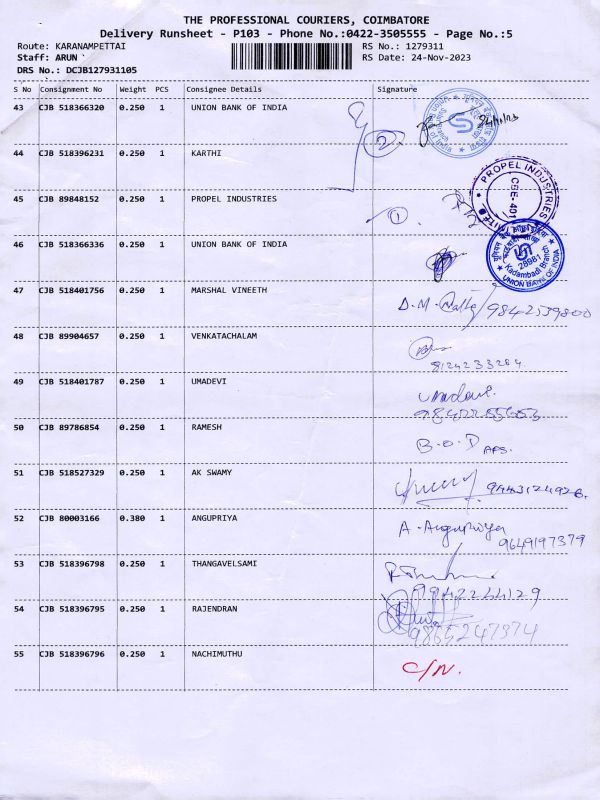 THE PROFESSIONAL COURIERS, COIMBATORE
Delivery Runsheet - P103 - Phone No.:0422-3505555 - Page No.:5
Route: KARANAMPETTAI RS No.: 1279311
Staff: ARUN RS Date: 24-Nov-2023
DRS No.: DCJB127931105
S No Consignment No Weight PCS Consignee Details Signature
43 CJB 518366320 0.250 1 UNION BANK OF INDIA
2
44 CJB 518396231 0.250 1 KARTHI
PROPEL INDUSTRIES
45 CJB 89848152 0.250 1 PROPEL INDUSTRIES
1
46 CJB 518366336 0.250 1 UNION BANK OF INDIA
28981
Kadambadi Branch
UNION BANK OF INDIA
47 CJB 518401756 0.250 1 MARSHAL VINEETH
9842539800
48 CJB 89904657 0.250 1 VENKATACHALAM
8124233284
49 CJB 518401787 0.250 1 UMADEVI
50 CJB 89786854 0.250 1 RAMESH
B.O.D
51 CJB 518527329 0.250 1 AK SWAMY
9443124926.
52 CJB 80003166 0.380 1 ANGUPRIYA
A. Angupriya
9649197379
53 CJB 518396798 0.250 1 THANGAVELSAMI
9942244129
54 CJB 518396795 0.250 1 RAJENDRAN
9865247374
55 CJB 518396796 0.250 1 NACHIMUTHU
C/N.